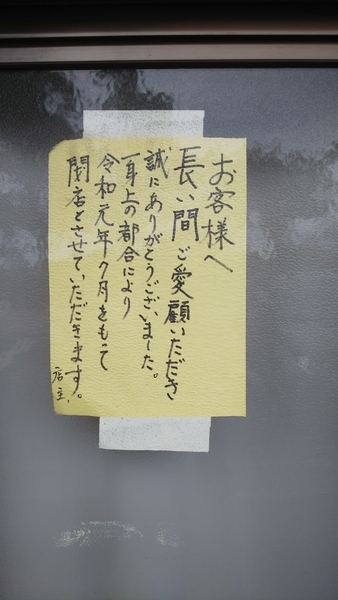 お客様へ
長い間ご愛顧いただき
誠にありがとうございました。
一身上の都合により
令和元年7月をもって
閉店とさせていただきます。
店主、